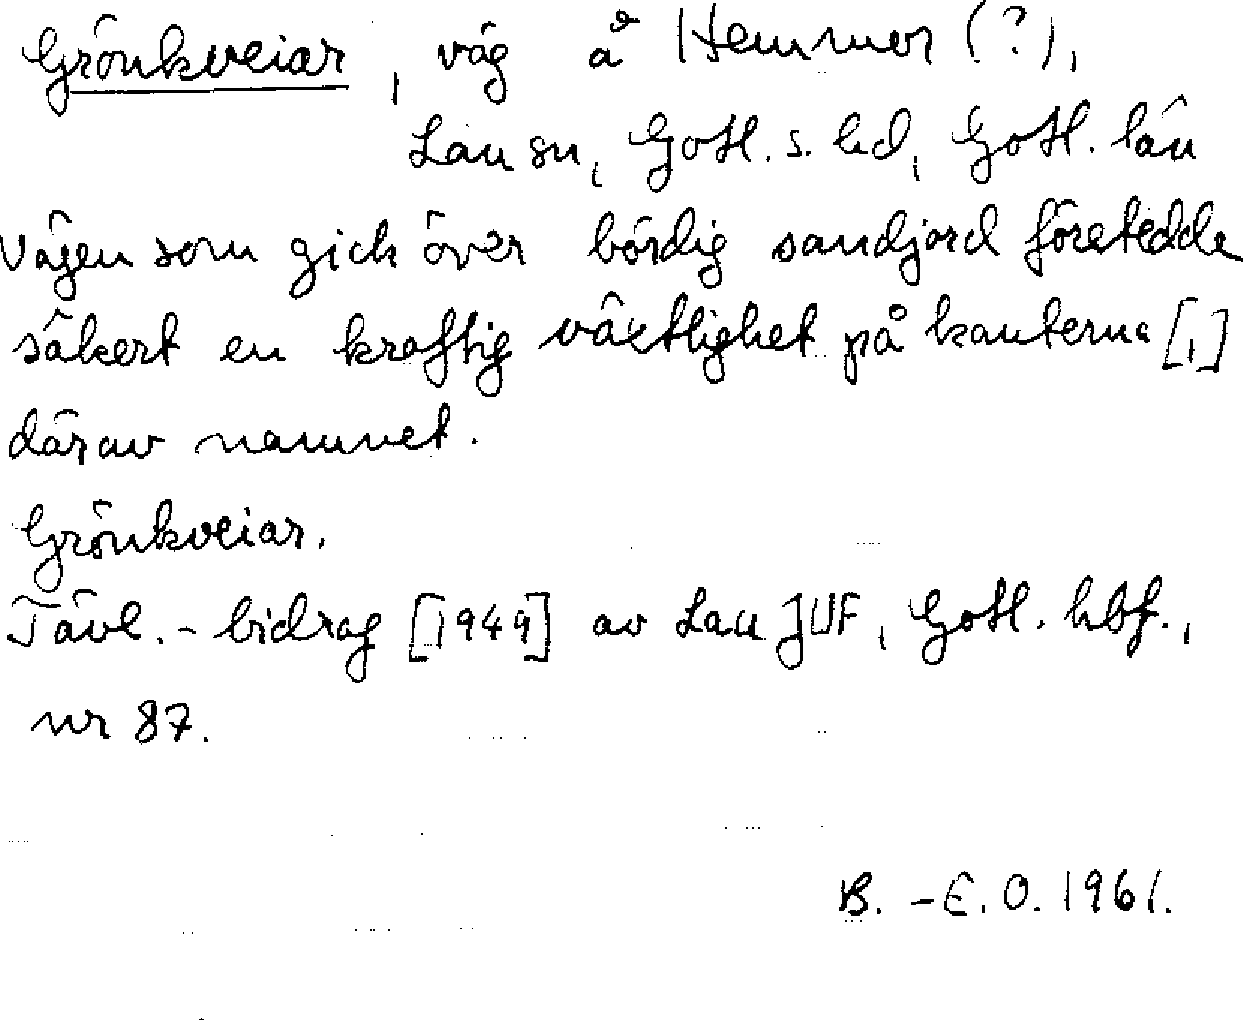 Grönkveiar, väg å Hemmor (?),
Lau sn, Gotl. s. hd, Gotl. län
Vägen som gick över bördig sandjord företedde
säkert en kraftig växtlighet på kanterna [,]
därav namnet.
Grönkveiar.
Tävl.-bidrag [1949] av Lau JUF, Gotl. hbf.,
nr 87.
B.-E. O. 1961.